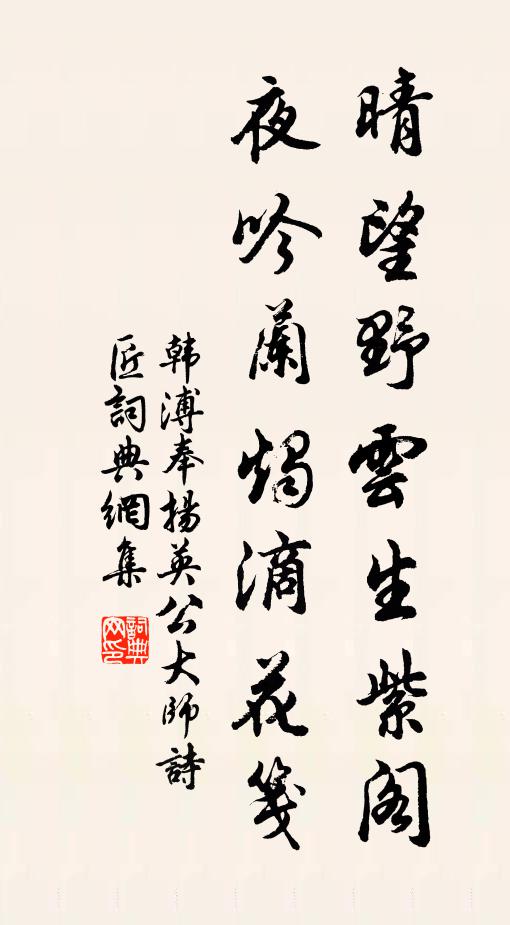 晴望野雲生紫阁
夜吟蘭燭滴花箋
韩溥奉揚英公大師詩
匠詞典網集
詞典网印